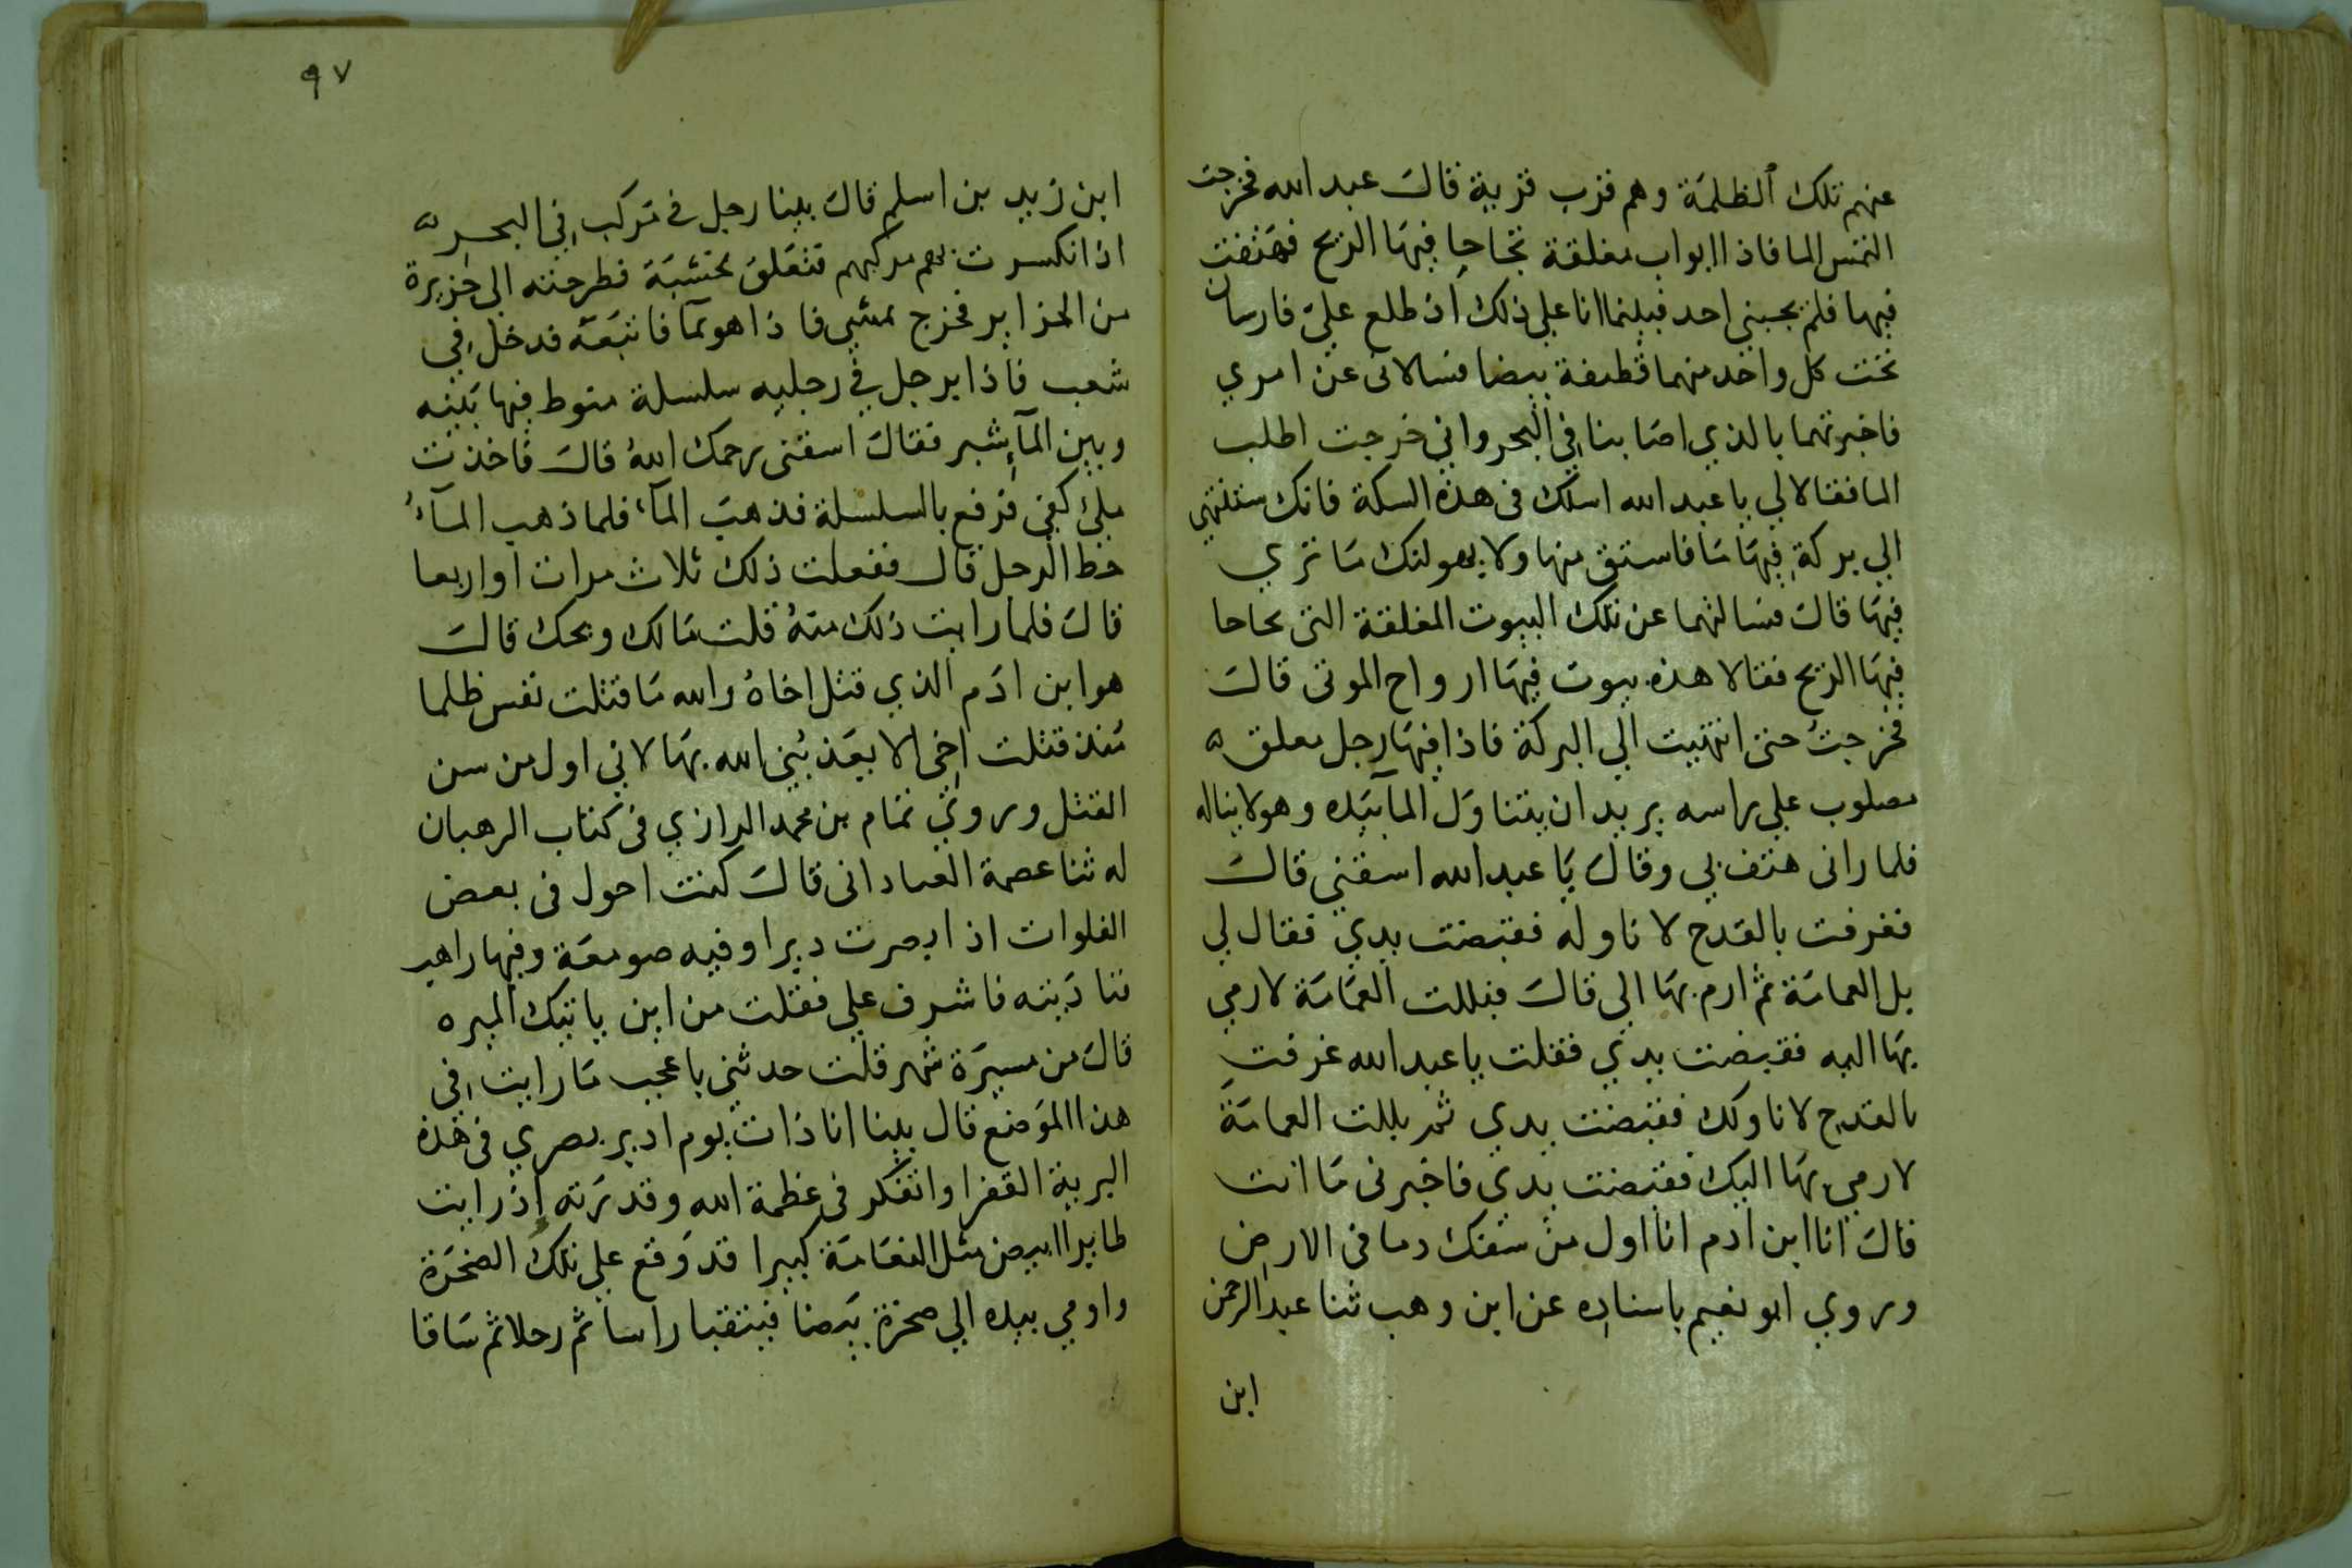 عنهم تلك الظلمة وهم قرب قرية قال عبد الله فخرجت
التمس الما فاذا ابواب مغلقة تجاجا فيها الريح فهتفت
فيها فلم يجبني احد فبينما انا على ذلك اذ طلع علي فارسان
تحت كل واحد منهما قطيفة بيضا فسالانى عن امري
فاخبرتهما بالذي اصابنا في البحر واني خرجت اطلب
الما فقالا لي يا عبد الله اسلك فى هذه السكة فانك ستنتهي
الي بركة فيها ما فاستق منها ولا يهولنك ما تري
فيها قال فسالتهما عن تلك البيوت المغلقة التى تجاجا
فيها الريح فقالا هذه بيوت فيها ارواح الموتى قال
فخرجت حتى انتهيت الي البركة فاذا فيها رجل معلق
مصلوب علي راسه يريد ان يتناول الما بيده وهو لا يناله
فلما رانى هتف بي وقال يا عبد الله اسقني قال
فغرفت بالقدح لاناوله فقبضت يدي فقال لي
بل العمامة ثم ارم بها الى قال فبللت العمامة لارمي
بها اليه فقبضت يدي فقلت يا عبد الله غرفت
بالقدح لاناولك فقبضت يدي ثم بللت العمامة
لارمي بها اليك فقبضت يدي فاخبرنى ما انت
قال انا ابن ادم انا اول من سفك دما فى الارض
وروي ابو نعيم باسناده عن ابن وهب ثنا عبد الرحمن
ابن
٩٧
ابن زيد بن اسلم قال بينا رجل في مركب في البحر
اذ انكسرت بهم مركبهم فتعلق بخشبة فطرحته الى جزيرة
من الجزاير فخرج يمشي فاذا هو بمآ فاتبعه فدخل في
شعب فاذا برجل في رجليه سلسلة منوط فيها بينه
وبين المآ شبر فقال اسقنى رحمك الله قال فاخذت
ملئ كفي فرفع بالسلسلة فذهب المآء فلما ذهب المآء
حط الرجل قال ففعلت ذلك ثلاث مرات او اربعا
قال فلما رايت ذلك منه قلت مالك ويحك قال
هو ابن ادم الذي قتل اخاه والله ما قتلت نفس ظلما
منذ قتلت اخي الا يعذبني الله بها لاني اول من سن
القتل وروي تمام بن محمد الرازي فى كتاب الرهبان
له ثنا عصمة العبادانى قال كنت احول فى بعض
الفلوات اذ ابصرت ديرا وفيه صومعة وفيها راهب
فناديته فاشرف علي فقلت من اين ياتيك الميره
قال من مسيرة شهر قلت حدثني باعجب ما رايت في
هذا الموضع قال بينا انا ذات يوم ادير بصري فى هذه
البرية القفرا واتفكر فى عظمة الله وقدرته اذ رايت
طايرا ابيض مثل النعامة كبيرا قد وقع علي تلك الصخرة
واومي بيده الي صخرة بيضا فيتقيا راسا ثم رجلا ثم ساقا